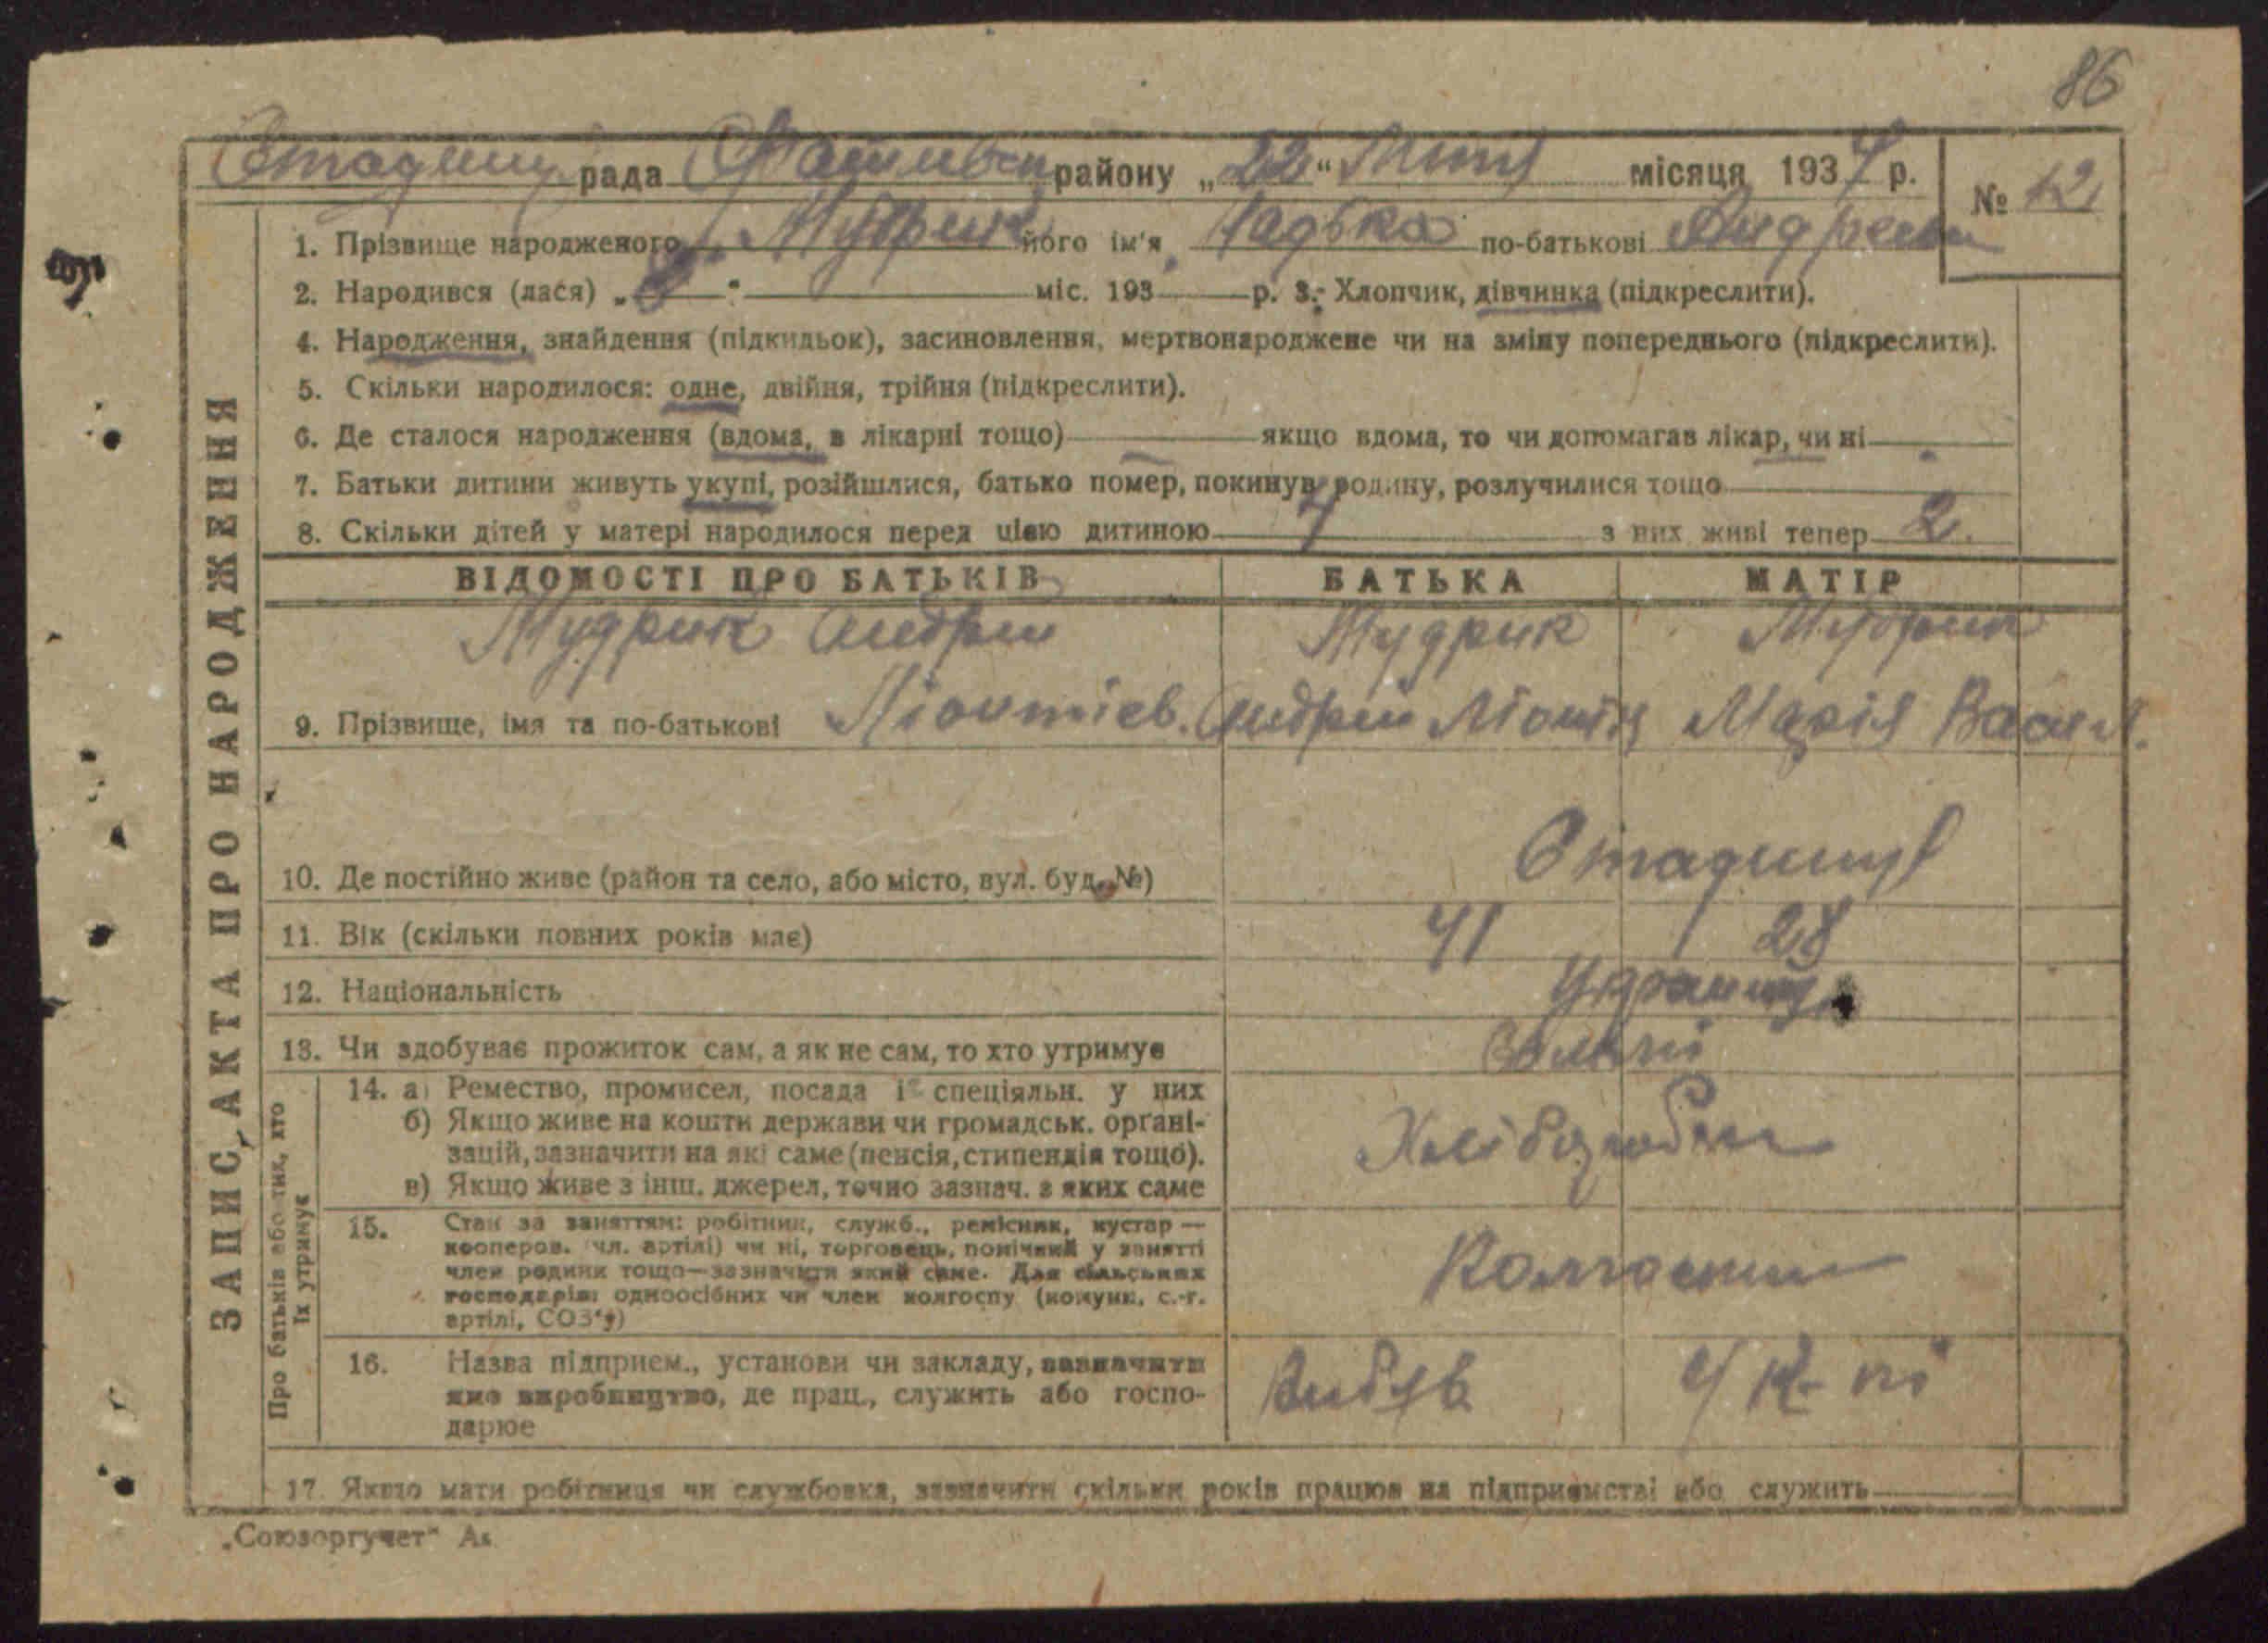 86
рада района „22“ місяця 1934 р.
№ 12
1. Прізвище народженого Мудрик його ім'я Надька по-батькові
2. Народився (лася) „ “ міс. 193 р. 3. Хлопчик, дівчинка (підкреслити).
4. Народження, знайдення (підкидьок), засиновлення, мертвонароджене чи на зміну попереднього (підкреслити).
5. Скільки народилося: одне, двійня, трійня (підкреслити).
6. Де сталося народження (вдома, в лікарні тощо) якщо вдома, то чи допомагав лікар, чи ні
7. Батьки дитини живуть укупі, розійшлися, батько помер, покинув родину, розлучилися тощо
8. Скільки дітей у матері народилося перед цією дитиною 4 з них живі тепер 2.
ВІДОМОСТІ ПРО БАТЬКІВ БАТЬКА МАТІР
Мудрик Андрій Мудрик Мудрик
9. Прізвище, імя та по-батькові Ліонтієв. Андрій Марія Васил.
10. Де постійно живе (район та село, або місто, вул. буд. №)
11. Вік (скільки повних років має) 41 28
12. Національність
13. Чи здобуває прожиток сам, а як не сам, то хто утримує
14. а) Ремество, промисел, посада і спеціяльн. у них
б) Якщо живе на кошти держави чи громадськ. органі-
зацій, зазначити на які саме (пенсія, стипендія тощо).
в) Якщо живе з інш. джерел, точно зазнач. з яких саме
Хлібороби
15. Стан за заняттям: робітник, служб., ремісник, кустар —
кооперов. (чл. артілі) чи ні, торговець, помічний у занятті
член родини тощо—зазначити який саме. Для сільських
господарів: одноосібних чи член колгоспу (комуни, с.-г.
артілі, СОЗ'у)
16. Назва підприєм., установи чи закладу, зазначити
яке виробництво, де прац., служить або госпо-
дарює
17. Якщо мати робітниця чи службовка, зазначити скільки років працює на підприємстві або служить
ЗАПИС АКТА ПРО НАРОДЖЕННЯ
Про батьків або тих, хто
їх утримує
„Союзоргучет“